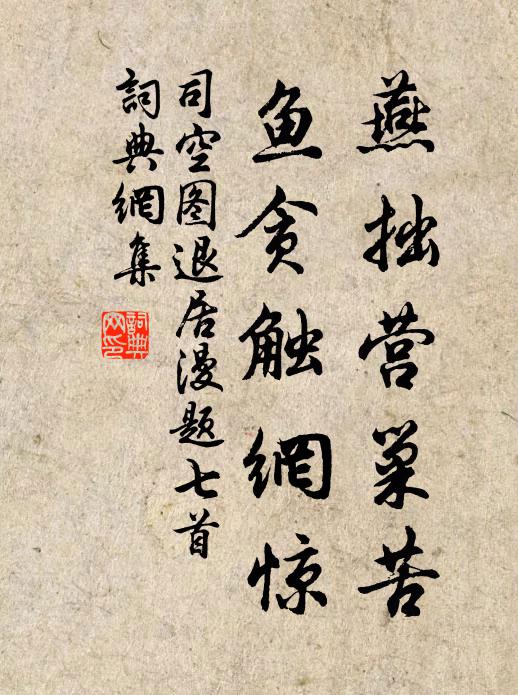 燕拙营巢苦
鱼贪触網惊
司空图退居漫题七首
詞典網集
詞典
网印